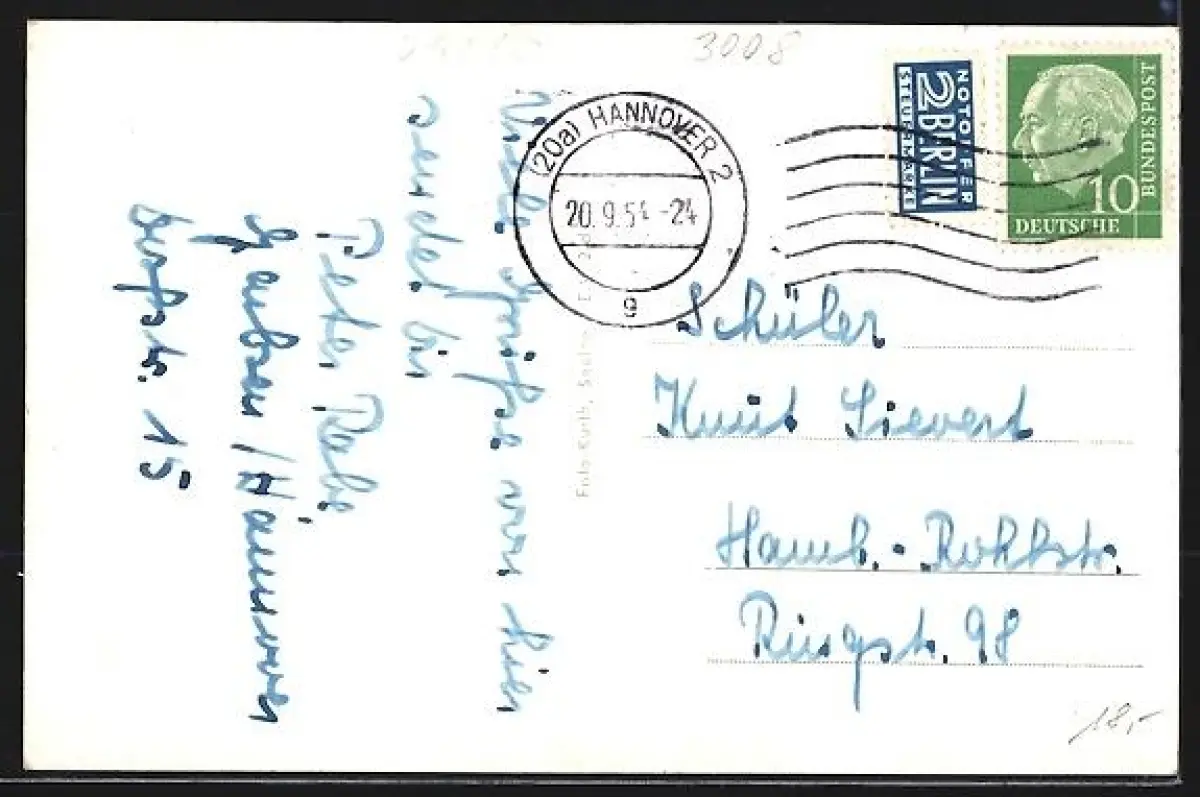 3008
NOTOPFER
2 BERLIN
STEUERMARKE
10
DEUTSCHE
BUNDESPOST
(20a) HANNOVER 2
20.9.54.-24
g
Viele Grüße von hier
sendet dir
Peter Rabe
Garbsen / Hannover
15
Foto-Kurth,
Schüler
Knut Sievert
Hamb.-Rahlst.
Ringstr. 98
18,-